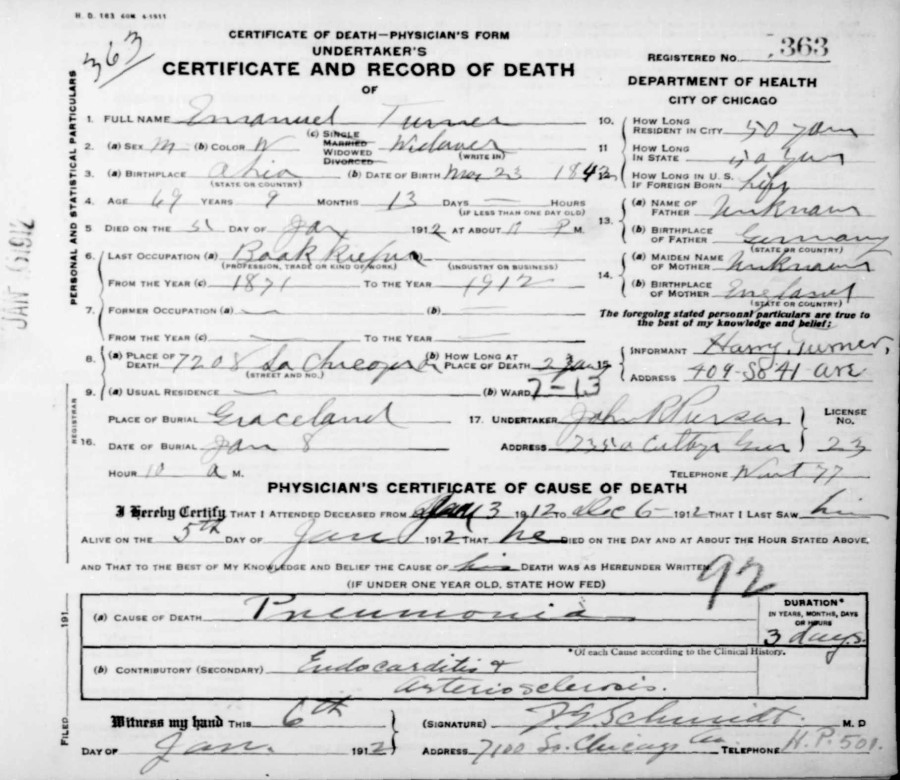 H. D. 163 60M 4-1911
CERTIFICATE OF DEATH—PHYSICIAN'S FORM
UNDERTAKER'S
CERTIFICATE AND RECORD OF DEATH
OF
363
REGISTERED No. 363
DEPARTMENT OF HEALTH
CITY OF CHICAGO
PERSONAL AND STATISTICAL PARTICULARS
JAN 1912
1. FULL NAME Emanuel Turner
2. (a) SEX M (b) COLOR W (c) SINGLE MARRIED WIDOWED DIVORCED Widower (WRITE IN)
3. (a) BIRTHPLACE Ohio (STATE OR COUNTRY) (b) DATE OF BIRTH Mar 23 1842
4. AGE 69 YEARS 9 MONTHS 13 DAYS — HOURS
(IF LESS THAN ONE DAY OLD)
5 DIED ON THE 5 DAY OF Jan 1912 AT ABOUT 11 P M.
6. LAST OCCUPATION (a) Book Keeper (b)
(PROFESSION, TRADE OR KIND OF WORK) (INDUSTRY OR BUSINESS)
FROM THE YEAR (c) 1871 TO THE YEAR 1912
7. FORMER OCCUPATION (a) — (b) —
FROM THE YEAR (c) — TO THE YEAR —
8. (a) PLACE OF DEATH 7208 So Chicago (STREET AND NO.) (b) HOW LONG AT PLACE OF DEATH 2
9. (a) USUAL RESIDENCE — (b) WARD 7-13
REGISTRAR
16. PLACE OF BURIAL Graceland
DATE OF BURIAL Jan 8
HOUR 10 a M.
10. HOW LONG RESIDENT IN CITY 50 years
11 HOW LONG IN STATE 50 Years
12 HOW LONG IN U.S. IF FOREIGN BORN Life
13. (a) NAME OF FATHER Unknown
(b) BIRTHPLACE OF FATHER Germany
(STATE OR COUNTRY)
14. (a) MAIDEN NAME OF MOTHER Unknown
(b) BIRTHPLACE OF MOTHER England
(STATE OR COUNTRY)
The foregoing stated personal particulars are true to
the best of my knowledge and belief:
15 INFORMANT Harry Turner,
ADDRESS 409-So 41 ave
17. UNDERTAKER John R Pierson LICENSE No.
ADDRESS 23
TELEPHONE Went 77
PHYSICIAN'S CERTIFICATE OF CAUSE OF DEATH
I Hereby Certify THAT I ATTENDED DECEASED FROM Jany 3 1912 TO Dec 6 1912 THAT I LAST SAW him
ALIVE ON THE 5th DAY OF Jan 1912 THAT he DIED ON THE DAY AND AT ABOUT THE HOUR STATED ABOVE,
AND THAT TO THE BEST OF MY KNOWLEDGE AND BELIEF THE CAUSE OF his DEATH WAS AS HEREUNDER WRITTEN
92
(IF UNDER ONE YEAR OLD, STATE HOW FED)
(a) CAUSE OF DEATH Pneumonia
DURATION*
IN YEARS, MONTHS, DAYS
OR HOURS
3 days.
*Of each Cause according to the Clinical History.
(b) CONTRIBUTORY (SECONDARY) Endocarditis &
Arteriosclerosis.
FILED 191
Witness my hand THIS 6th
DAY OF Jan. 1912
(SIGNATURE) F E Schmidt. M. D
ADDRESS 7100 So. Chicago Av TELEPHONE H.P. 501.